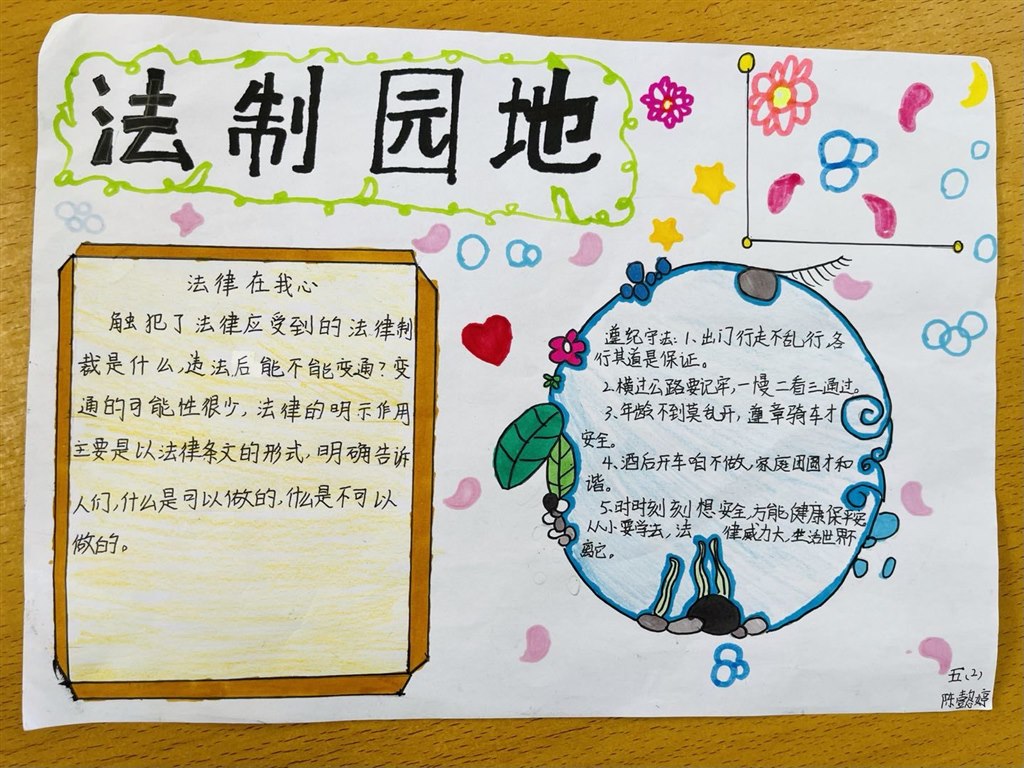 法制园地
法律在我心
触犯了法律应受到的法律制
裁是什么,违法后能不能变通?变
通的可能性很少,法律的明示作用
主要是以法律条文的形式,明确告诉
人们,什么是可以做的,什么是不可以
做的。
遵纪守法:1、出门行走不乱行,各
行其道是保证。
2.横过公路要记牢,一慢二看三通过。
3.年龄不到莫乱开,遵章骑车才
安全。
4.酒后开车咱不做,家庭团圆才和
谐。
5.时时刻刻想安全,方能健康保平安
从小要学法,法律威力大,生活世界不
离它。
五(2)
陈懿婷